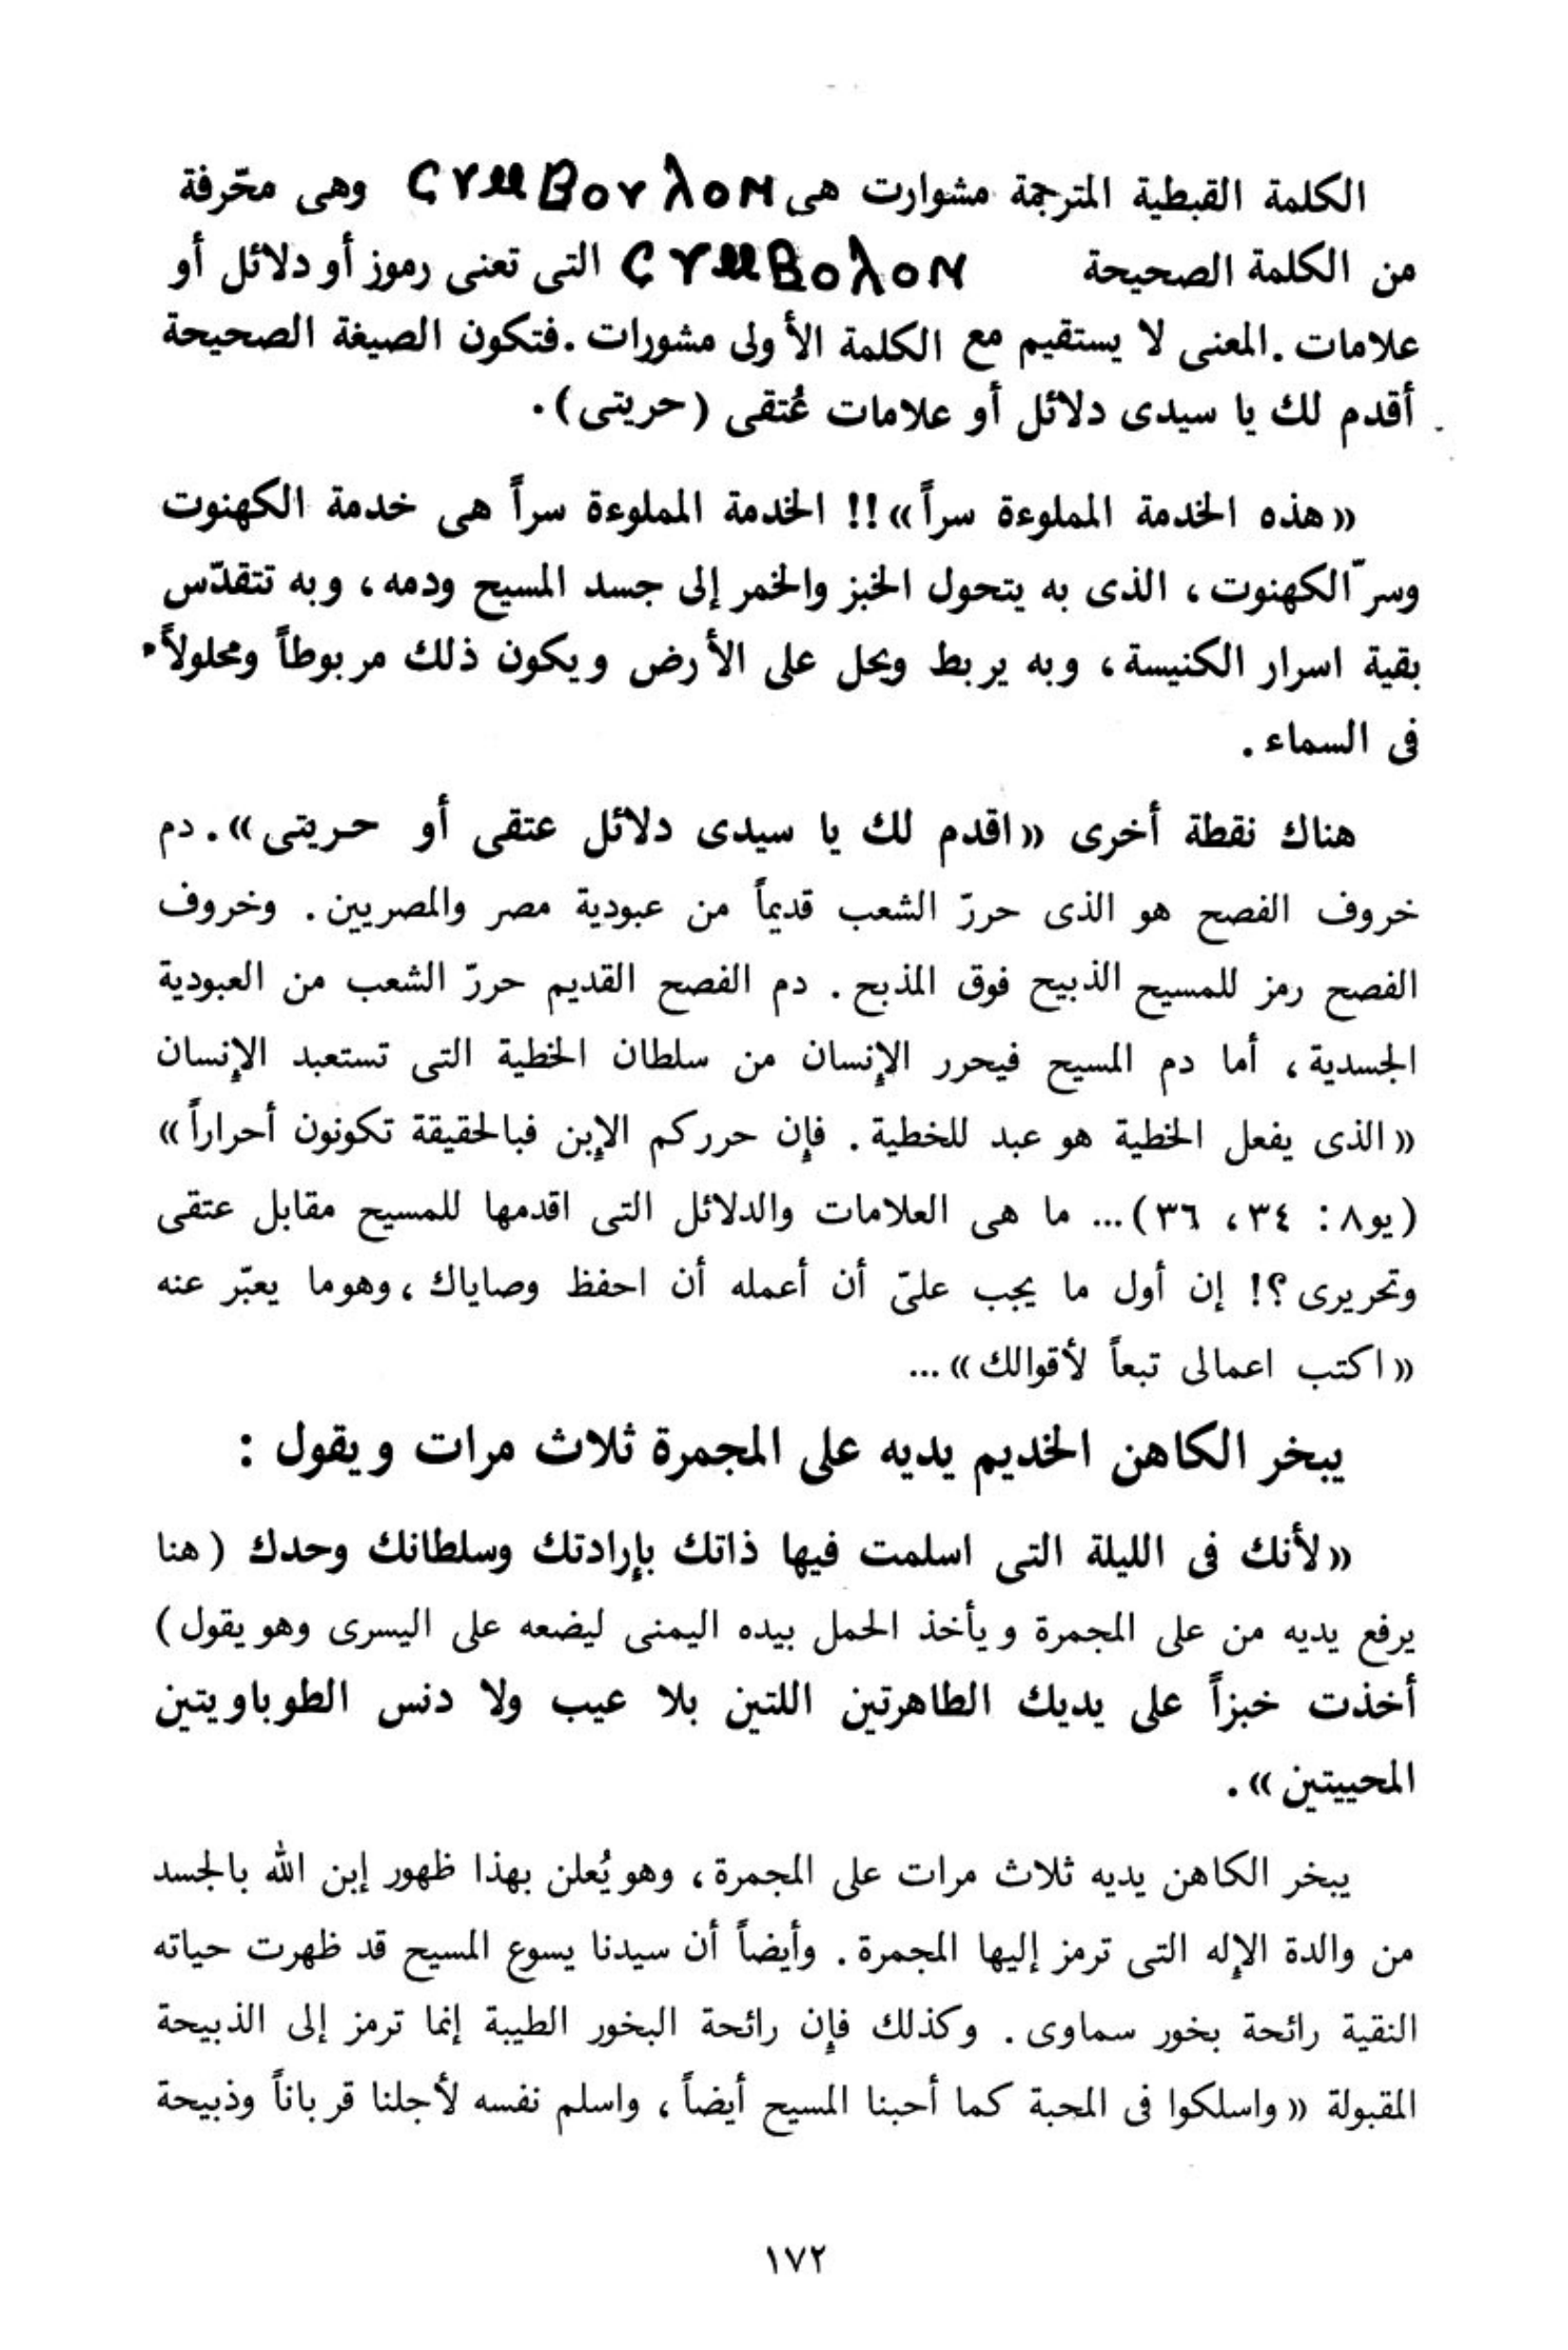 الكلمة القبطية المترجمة مشوارت هى ⲤⲨⲘⲂⲞⲨⲖⲞⲚ وهى محّرفة
من الكلمة الصحيحة ⲤⲨⲘⲂⲞⲖⲞⲚ التى تعنى رموز أو دلائل أو
علامات . المعنى لا يستقيم مع الكلمة الأولى مشورات . فتكون الصيغة الصحيحة
أقدم لك يا سيدى دلائل أو علامات عُتقى (حريتى) .
«هذه الخدمة المملوءة سراً» !! الخدمة المملوءة سراً هى خدمة الكهنوت
وسرّ الكهنوت ، الذى به يتحول الخبز والخمر إلى جسد المسيح ودمه ، وبه تتقدّس
بقية اسرار الكنيسة ، وبه يربط ويحل على الأرض ويكون ذلك مربوطاً ومحلولاً
فى السماء .
هناك نقطة أخرى «اقدم لك يا سيدى دلائل عتقى أو حريتى» . دم
خروف الفصح هو الذى حررّ الشعب قديماً من عبودية مصر والمصريين . وخروف
الفصح رمز للمسيح الذبيح فوق المذبح . دم الفصح القديم حررّ الشعب من العبودية
الجسدية ، أما دم المسيح فيحرر الإنسان من سلطان الخطية التى تستعبد الإنسان
«الذى يفعل الخطية هو عبد للخطية . فإن حرركم الإبن فبالحقيقة تكونون أحراراً»
(يو٨ : ٣٤ ، ٣٦) ... ما هى العلامات والدلائل التى اقدمها للمسيح مقابل عتقى
وتحريرى ؟! إن أول ما يجب علىّ أن أعمله أن احفظ وصاياك ، وهوما يعبّر عنه
«اكتب اعمالى تبعاً لأقوالك» ...
يبخر الكاهن الخديم يديه على المجمرة ثلاث مرات ويقول :
«لأنك فى الليلة التى اسلمت فيها ذاتك بإرادتك وسلطانك وحدك (هنا
يرفع يديه من على المجمرة ويأخذ الحمل بيده اليمنى ليضعه على اليسرى وهو يقول)
أخذت خبزاً على يديك الطاهرتين اللتين بلا عيب ولا دنس الطوباويتين
المحييتين» .
يبخر الكاهن يديه ثلاث مرات على المجمرة ، وهو يُعلن بهذا ظهور إبن الله بالجسد
من والدة الإله التى ترمز إليها المجمرة . وأيضاً أن سيدنا يسوع المسيح قد ظهرت حياته
النقية رائحة بخور سماوى . وكذلك فإن رائحة البخور الطيبة إنما ترمز إلى الذبيحة
المقبولة «واسلكوا فى المحبة كما أحبنا المسيح أيضاً ، واسلم نفسه لأجلنا قرباناً وذبيحة
١٧٢